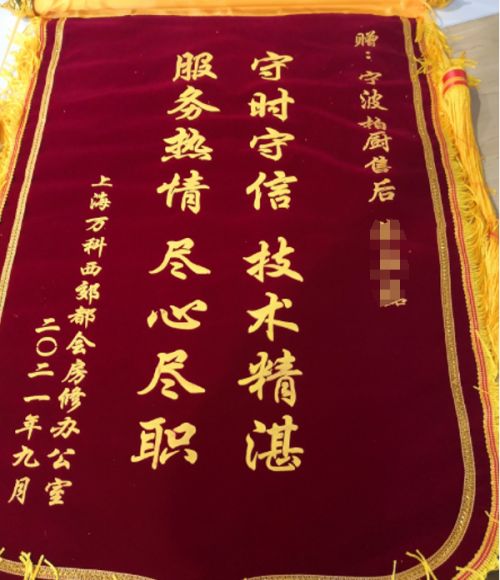 赠：宁波柏厨售后
守时守信 技术精湛
服务热情 尽心尽职
上海万科西郊都会房修办公室
二〇二一年九月